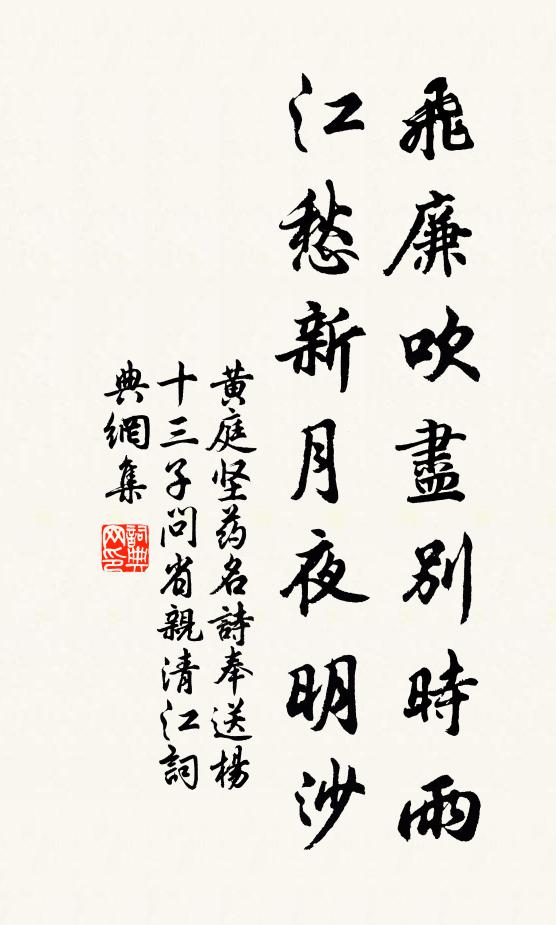 飛廉吹盡別時雨
江愁新月夜明沙
黄庭坚药名詩奉送楊
十三子問省親清江詞
典網集
詞典网印